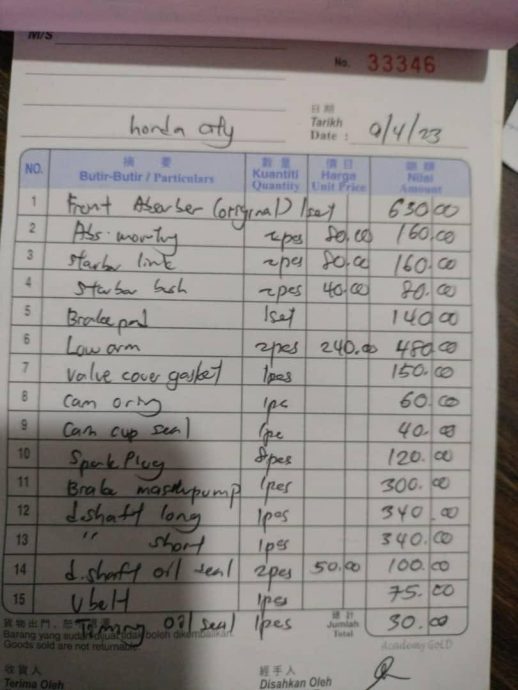 M/S
No. 33346
日期
Tarikh
Date : 9/4/23
honda city
NO. 摘要 Butir-Butir / Particulars 數量 Kuantiti Quantity 價目 Harga Unit Price 銀額 Nilai Amount
1 Front Absorber (original) 1set 630.00
2 Abs. mounting 2pcs 80.00 160.00
3 starbar link 2pcs 80.00 160.00
4 starbar bush 2pcs 40.00 80.00
5 Brake pad 1set 140.00
6 Low arm 2pcs 240.00 480.00
7 Valve cover gasket 1pcs 150.00
8 Cam oring 1pc 60.00
9 Cam cup seal 1pc 40.00
10 Spark Plug 8pcs 120.00
11 Brake master pump 1pcs 300.00
12 d.shaft long 1pcs 340.00
13 " short 1pcs 340.00
14 d.shaft oil seal 2pcs 50.00 100.00
15 V belt 1pcs 75.00
Timing oil seal 1pcs 30.00
貨物出門，恕
Barang yang sudah dijual tidak boleh dikembalikan.
Goods sold are not returnable
總計
Jumlah
Total
Academy GOLD
收貨人
Terima Oleh
經手人
Disahkan Oleh